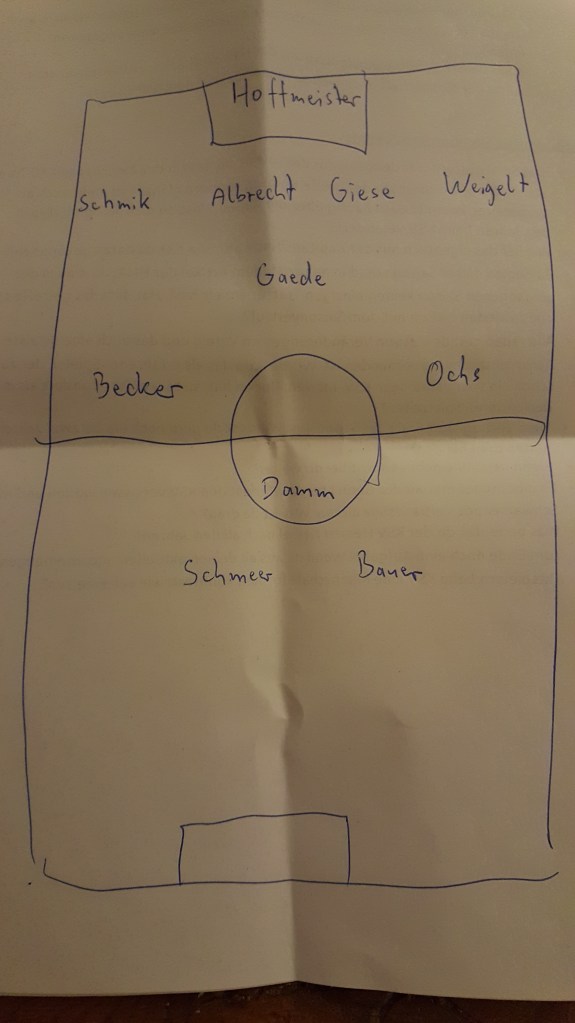 Hoffmeister
Schmik Albrecht Giese Weigelt
Gaede
Becker Ochs
Damm
Schmeer Bauer